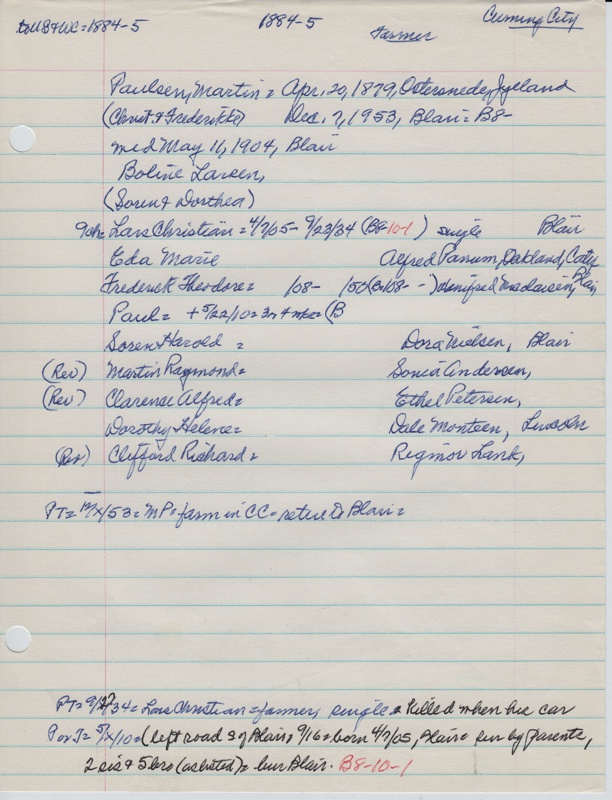 to US & WC = 1884-5   1884-5   Farmer   Cuming City
Paulsen, Martin = Apr. 20, 1879, Jylland
(Christ & Frederikke)   Dec. 7, 1953, Blair = B8-
med May 11, 1904, Blair
Boline Larsen,
(Soren & Dorthea)
9ch = Lars Christian = 4/7/05 - 9/23/34 (B8-10-1) single   Blair
Eda Marie   Alfred Panum, Oakland, Caty
Frederick Theodore = /08- /50 (B-108- -) Winifred Madsen, Blair
Paul = + 5/22/10 = 3m + (B
Soren Harold =   Dora Nielsen, Blair
(Rev) Martin Raymond =   Sonia Andersen,
(Rev) Clarence Alfred =   Ethel Petersen,
Dorothy Helene =   Dale Monteen, Lincoln
(Rev) Clifford Richard =   Rigmor Lank,
PT = /X/53 = MP = farm in CC = retire to Blair =
PT = 9/27/34 = Lars Christian = farmer, single = killed when his car
P or T = 5/X/10 = (left road S of Blair, 9/16 = born 4/7/05, Blair = sur by parents,
2 sis & 5 bro (as listed) = bur Blair. B8-10-1